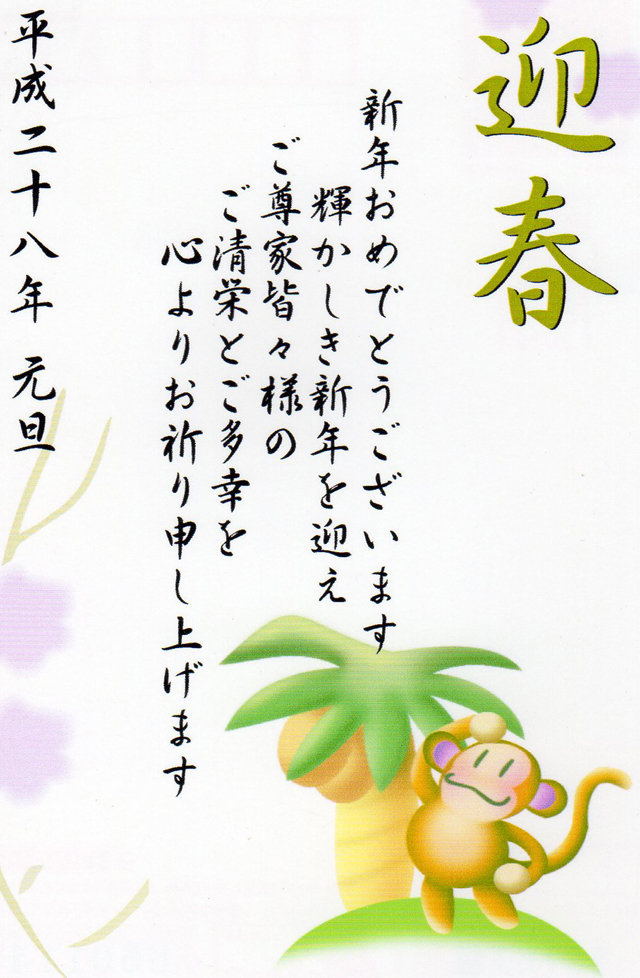 迎春
新年おめでとうございます
輝かしき新年を迎え
ご尊家皆々様の
ご清栄とご多幸を
心よりお祈り申し上げます
平成二十八年 元旦